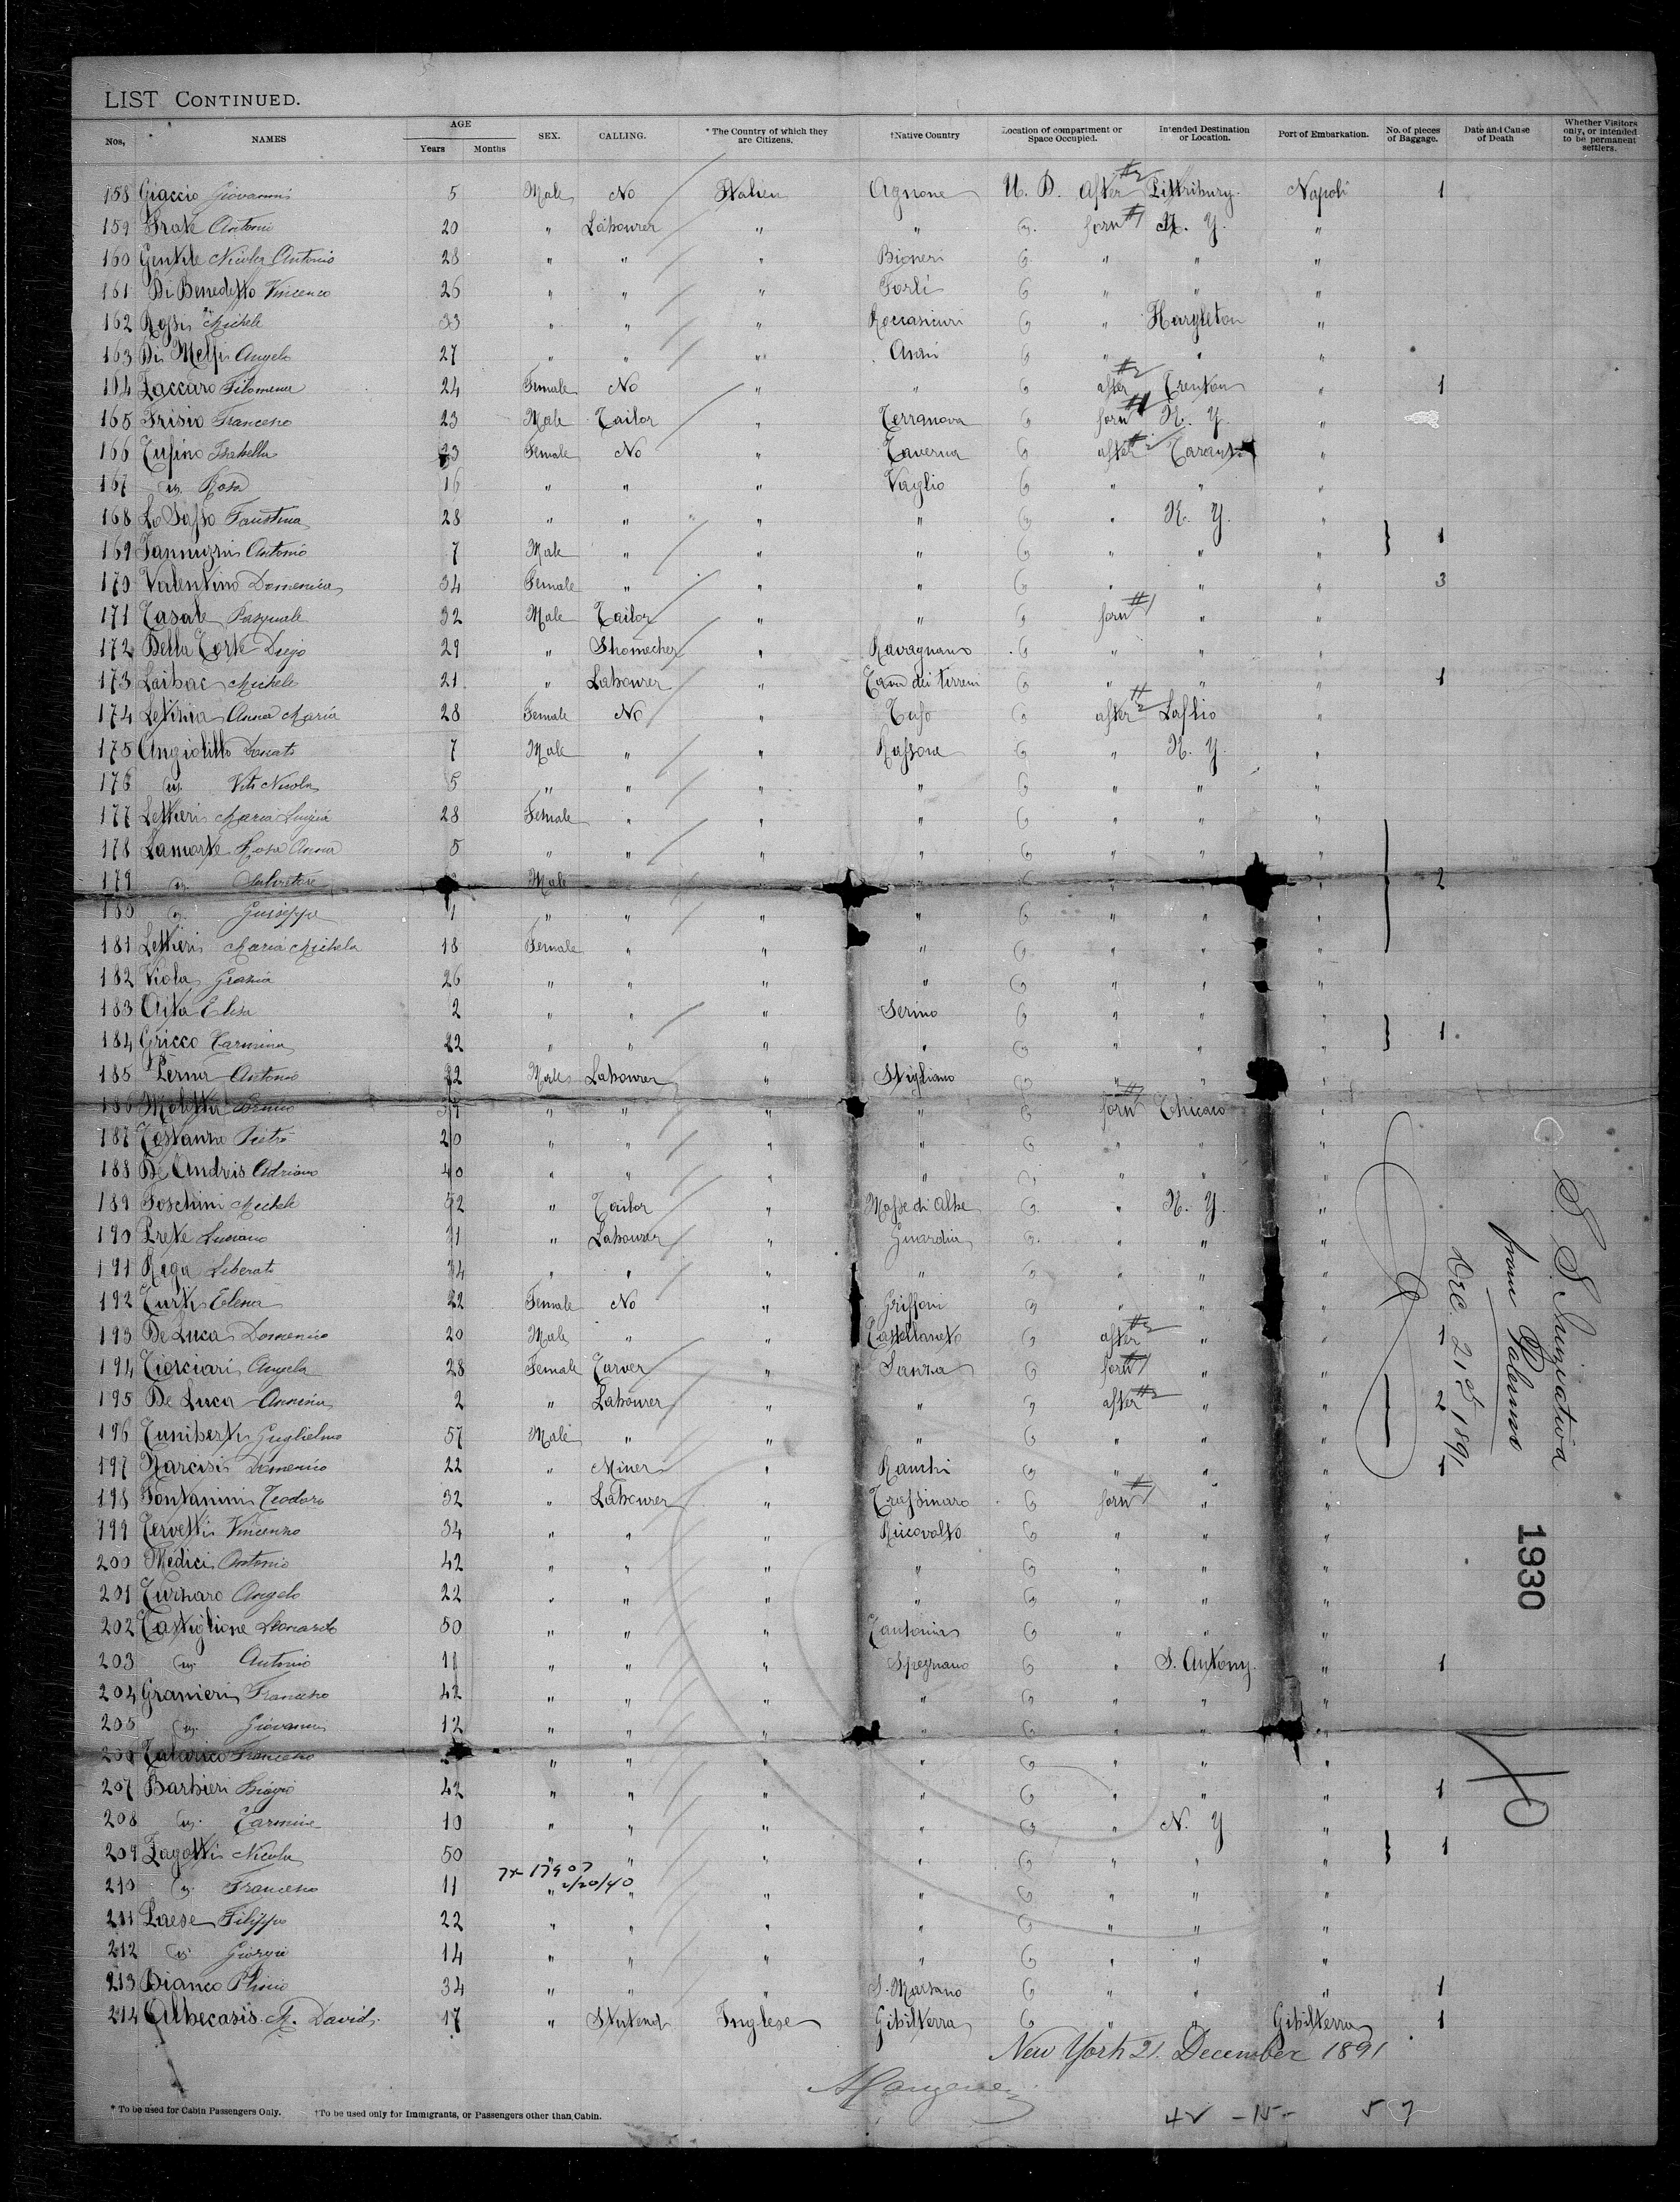 LIST CONTINUED.
Nos, NAMES AGE Years Months SEX. CALLING. * The Country of which they are Citizens. †Native Country Location of compartment or Space Occupied. Intended Destination or Location. Port of Embarkation. No. of pieces of Baggage. Date and Cause of Death Whether Visitors only, or intended to be permanent settlers.
158 Giaccio Giovanni 5 Male No Italien Agnone U. D. after #2 Napoli 1
159 Frate Antonio 20 " Labourer " " forw #1 N. Y. "
160 Gentile Nicola Antonio 28 " " " " " "
161 Di Benedetto Vincenzo 26 " " " Forli " " "
162 Rossi Michele 33 " " " Roccasicuri " Hazleton "
163 Di Melfi Angelo 27 " " " " " "
164 Zaccaro Filomena 24 Female No " " after #2 Trenton " 1
165 Frisio Francesco 23 Male Tailor " Terranova forw #1 N. Y. "
166 Tufino Isabella 23 Female No " Taverna after #2 "
167 Rosa 16 " " " Vaglio " " "
168 Lo Sasso Faustina 28 " " " " " N. Y. "
169 Iannuzzi Antonio 7 Male " " " " " " 1
170 Valentino Domenica 34 Female " " " " " " 3
171 Casale Pasquale 32 Male Tailor " " forw #1 " "
172 Della Corte Diego 29 " Shomecher " Ravagnano " " "
173 Laibac Michele 21 " Labourer " Cava dei tirreni " " " 1
174 Letizia Anna Maria 28 Female No " Tufo after #2 "
175 Angiolillo Donato 7 Male " " Rapone " N. Y. "
176 Vito Nicola 5 " " " " " " "
177 Lettieri Maria Luigia 28 Female " " " " " "
178 Lamorte Rosa Anna 5 " " " " " " "
179 Salvatore Male " " 2
180 Giuseppe 1 " " " " " " "
181 Lettieri Maria Michela 18 Female " " " " " "
182 Viola Grazia 26 " " " " " " "
183 Aita Elisa 2 " " " Serino " " "
184 Gricco Carmina 22 " " " " " " " 1
185 Perna Antonio 22 Male Labourer " Stigliano " " "
186 " " " " forw #1 Chicaco "
187 Costanzo Pietro 20 " " " " " " "
188 De Andreis Adriano 40 " " " " " " "
189 Foschini Michele 52 " Tailor " Masse di Albe " N. Y. "
190 Prete Luciano " Labourer " Guardia " " "
191 Riga Liberato " " " " " " "
192 Turk Elena 22 Female No " Griffoni " " "
193 De Luca Domenico 20 Male " " Castellaneto after #2 " " 1
194 Ciorciari Angela 28 Female Carver " Sanza forw #1 " "
195 De Luca Annina 2 " Labourer " " after #2 " " 2
196 Cuniberti Guglielmo 57 Male " " " " " "
197 Narcisi Domenico 22 " Miner " Ranchi " " " 1
198 Fontanini Teodoro 32 " Labourer " Trassinaro forw #1 " "
199 Cervetti Vincenzo 34 " " " Ricovalto " " "
200 Medici Antonio 42 " " " " " " "
201 Curnaro Angelo 22 " " " " " " "
202 Castiglione Leonardo 50 " " " " " "
203 Antonio 11 " " " Spegnano " S. Antony. " 1
204 Granieri Francesco 42 " " " " " " "
205 Giovanni 12 " " " " " " "
206 Talarico Francesco " " " " " " "
207 Barbieri Biagio 42 " " " " " " " 1
208 Carmine 10 " " " " " N. Y "
209 Zagotti Nicola 50 " " " " " " " 1
7x- 17907
2/20/40
210 Francesco 11 " " " " " " "
211 Paese Filippo 22 " " " " " " "
212 Giorgio 14 " " " " " " "
213 Bianco Plinio 34 " " " S. Marzano " " " 1
214 Albecasis M. David 17 " Student Inglese Gibilterra " " Gibilterra 1
New York 21. December 1891
S. S. Iniziativa
from Palermo
Dec. 21st 1891
1930
* To be used for Cabin Passengers Only. †To be used only for Immigrants, or Passengers other than Cabin.